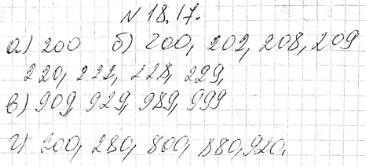 N 18.17.
а) 200 б) 200, 202, 208, 209
220, 222, 228, 229,
в) 909, 929, 989, 999
г) 200, 280, 800, 880, 920.